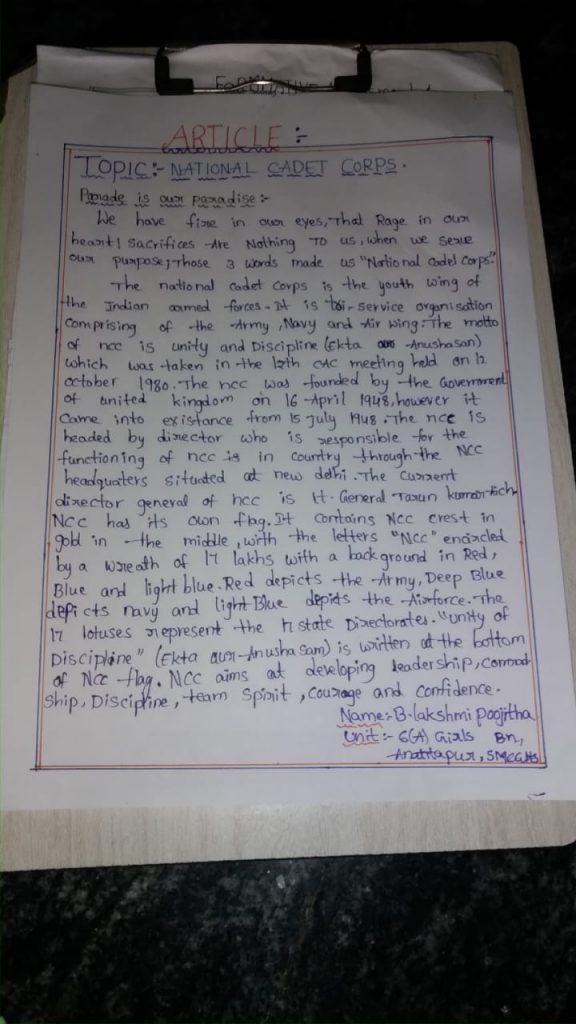 FORMATIVE
ARTICLE :-
TOPIC:- NATIONAL CADET CORPS.
Parade is our paradise :-
We have fire in our eyes, That Rage in our
heart! Sacrifices Are Nothing To us, when we serve
our purpose; Those 3 words made us "National Cadet Corps".
The national cadet corps is the youth wing of
the Indian armed forces. It is tri-service organisation
comprising of the Army, Navy and Air wing. The motto
of ncc is unity and Discipline (Ekta aur Anushasan)
which was taken in the 12th CAC meeting held on 12
october 1980. The ncc was founded by the Government
of united kingdom on 16 April 1948, however it
came into existance from 15 July 1948. The ncc is
headed by director who is responsible for the
functioning of ncc is in country through the NCC
headquaters situated at new delhi. The current
director general of ncc is lt. General Tarun kumar Aich
NCC has its own flag. It contains NCC crest in
gold in the middle, with the letters "NCC" encircled
by a wreath of 17 lakhs with a background in Red,
Blue and light blue. Red depicts the Army, Deep Blue
depicts navy and light Blue depicts the Airforce. The
17 lotuses represent the 17 state Directorates. "unity of
Discipline" (Ekta aur Anushasam) is written at the bottom
of NCC flag. NCC aims at developing leadership, comrad
ship, Discipline, team spirit, courage and confidence.
Name:- B. lakshmi poojitha
unit :- 6(A) Girls Bn,
Anantapur, SMCGHS